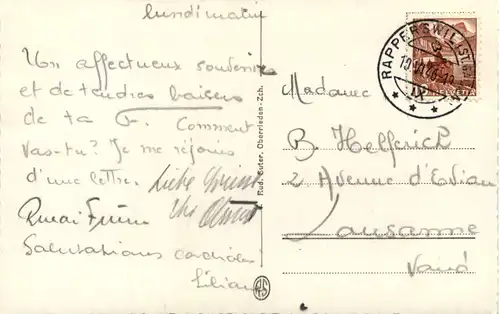 lundi matin
Un affectueux souvenir
et de tendres baisers
de ta G. Comment
vas-tu? Je me réjouis
d'une lettre. Liebe
Salutations cordiales
Liliane
Rud. Suter, Oberrieden-Zch.
RS
RAPPERSWIL (ST.
HELVETIA
Madame
B. Helferich
2 Avenue d'Evian
Lausanne
Vaud